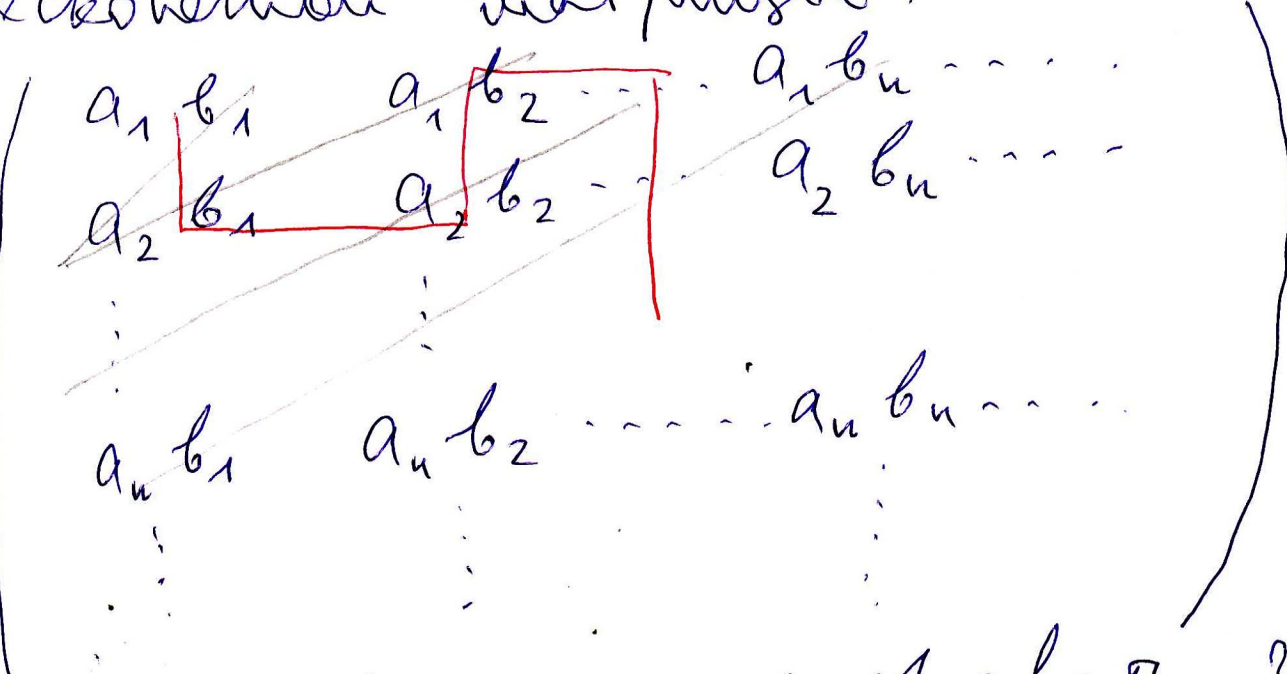 a₁ b₁ a₁ b₂ ..... a₁ bₙ .....
a₂ b₁ a₂ b₂ ..... a₂ bₙ .....
aₙ b₁ aₙ b₂ ..... aₙ bₙ .....